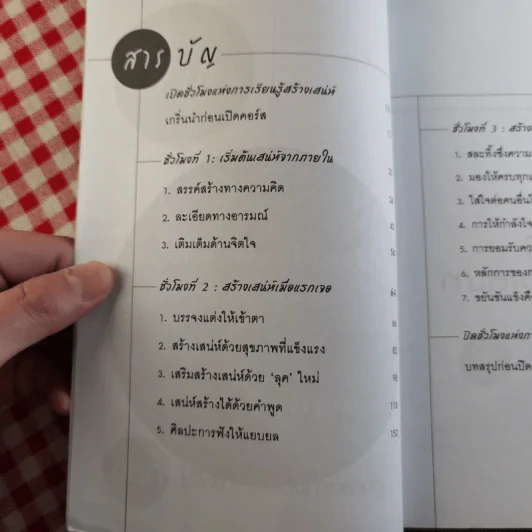 สารบัญ
เปิดชั่วโมงแห่งการเรียนรู้สร้างเสน่ห์
เกริ่นนำก่อนเปิดคอร์ส
ชั่วโมงที่ 1: เริ่มต้นเสน่ห์จากภายใน
1. สรรค์สร้างทางความคิด
2. ละเอียดทางอารมณ์
3. เติมเต็มด้านจิตใจ
ชั่วโมงที่ 2 : สร้างเสน่ห์เมื่อแรกเจอ 64
1. บรรจงแต่งให้เข้าตา
2. สร้างเสน่ห์ด้วยสุขภาพที่แข็งแรง
3. เสริมสร้างเสน่ห์ด้วย 'ลุค' ใหม่
4. เสน่ห์สร้างได้ด้วยคำพูด
5. ศิลปะการฟังให้แยบยล
ชั่วโมงที่ 3 : สร้าง
1. สละทิ้งซึ่งความ
2. มองให้ครบทุก
3. ใส่ใจต่อคนอื่น
4. การให้กำลังใจ
5. การยอมรับความ
6. หลักการของ
7. ขยันขันแข็ง
ปิดชั่วโมงแห่งกา
บทสรุปก่อนปิด